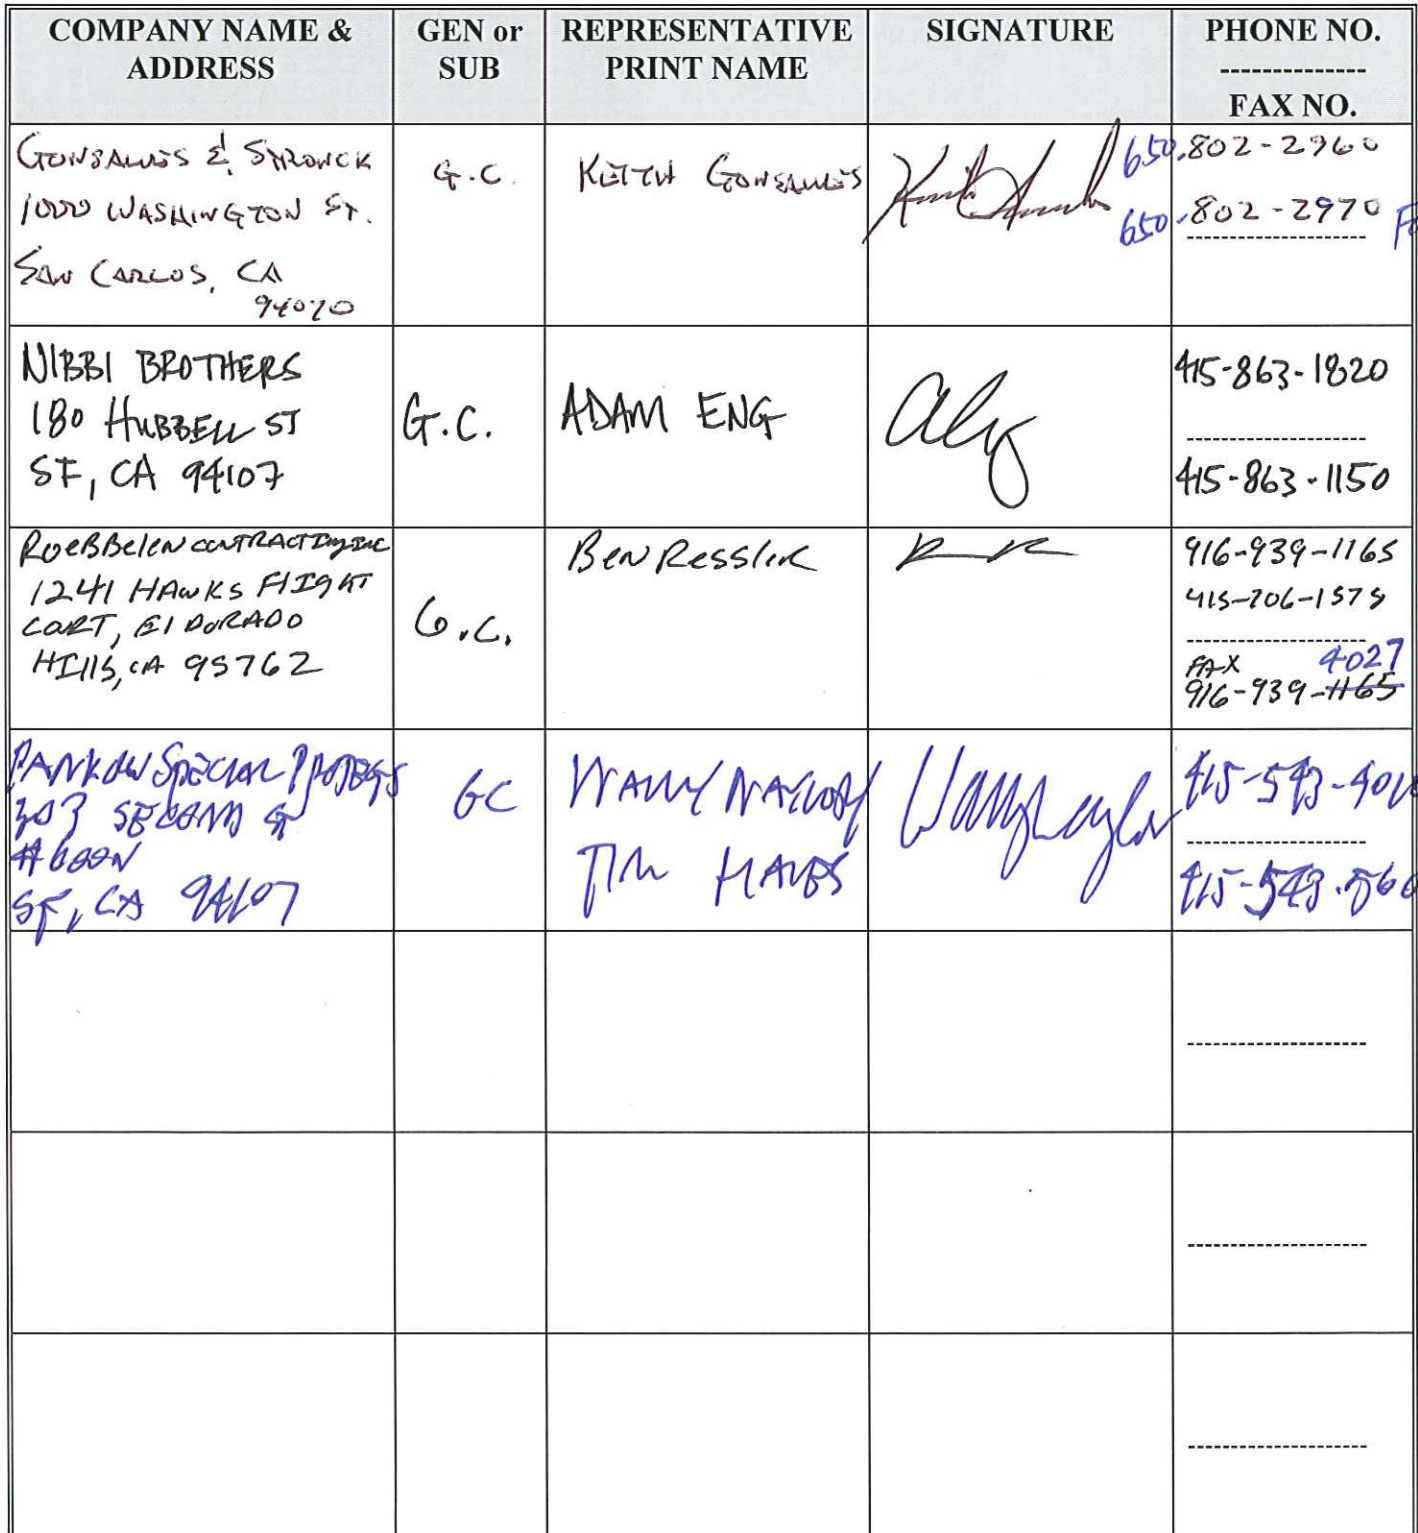 COMPANY NAME & ADDRESS
GEN or SUB
REPRESENTATIVE PRINT NAME
SIGNATURE
PHONE NO.
--------------
FAX NO.
GONSALVES & STRONCK
1000 WASHINGTON ST.
SAN CARLOS, CA
94070
G.C.
KEITH GONSALVES
650.802-2960
650-802-2970
NIBBI BROTHERS
180 HUBBELL ST
SF, CA 94107
G.C.
ADAM ENG
415-863-1820
415-863-1150
RoeBBelen CONTRACTING INC
1241 HAWKS FlIGHT
COURT, El DORADO
HIllS, CA 95762
G.C.
Ben Ressler
916-939-1165
FAX 4027
916-939-1165
PANKOW SPECIAL PROJECTS
303 SECOND ST
SF, CA 94107
GC
WALLY NAYLOR
TIM HAYES
Wally Naylor